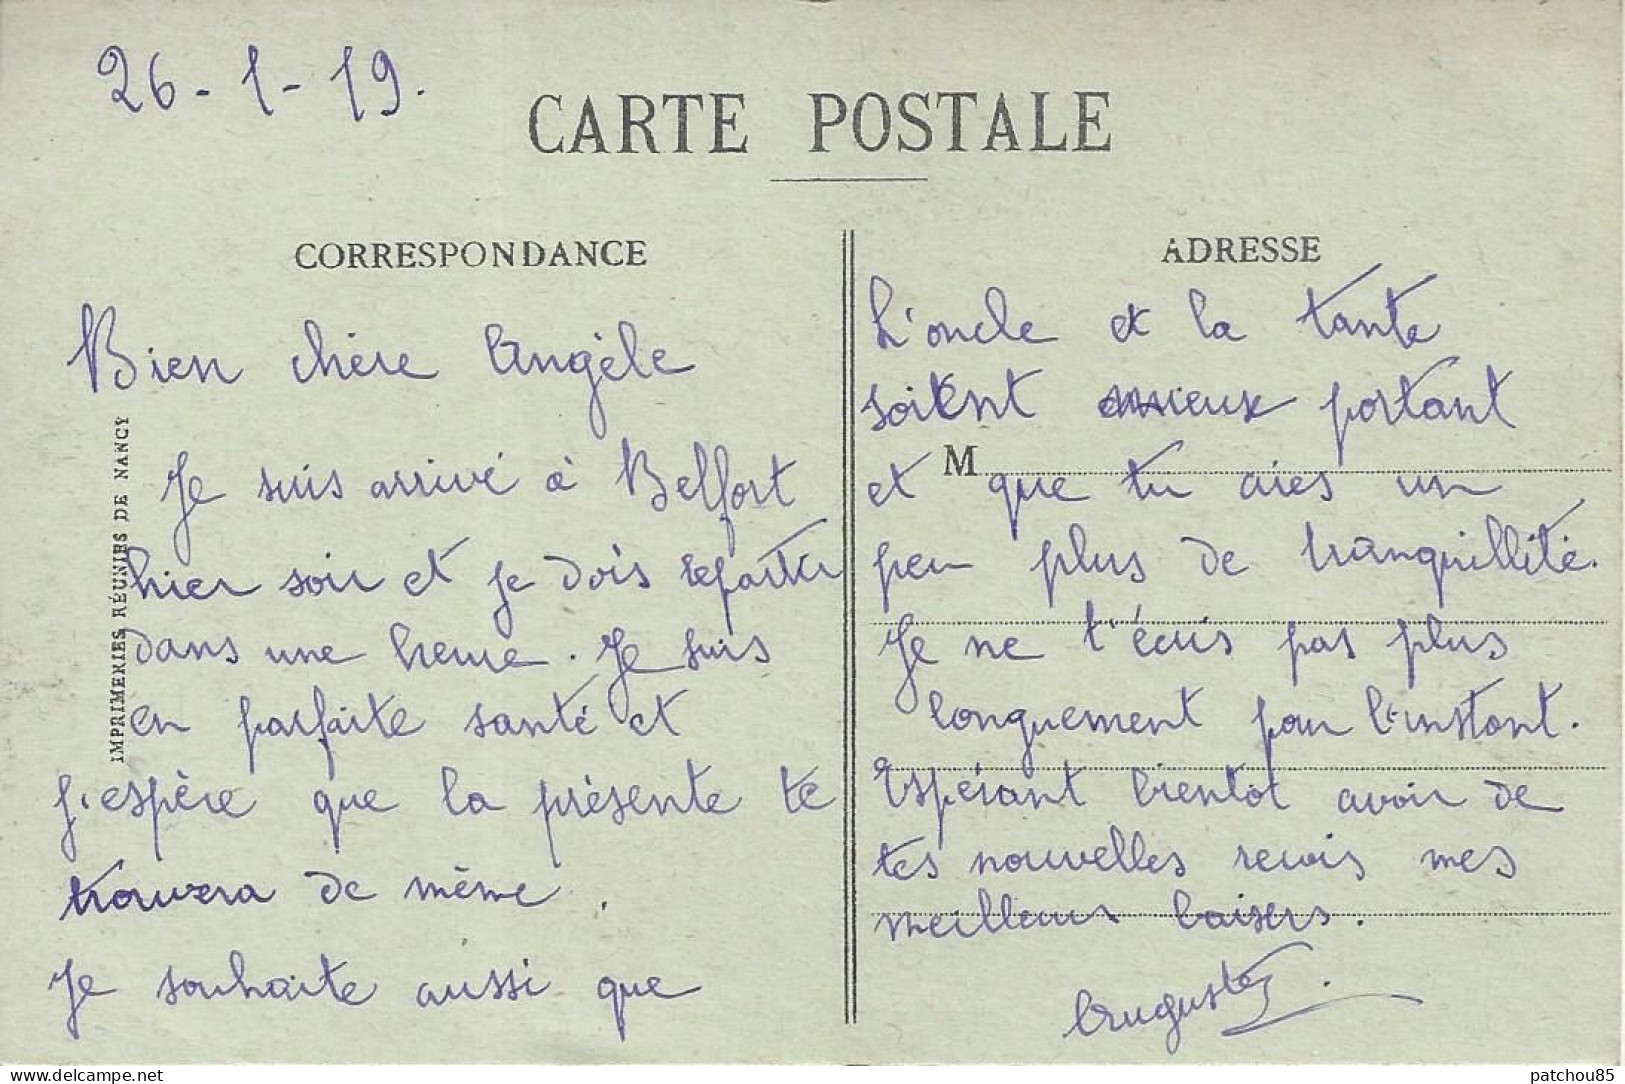 26-1-19.
CARTE POSTALE
CORRESPONDANCE
Bien chère Angèle
Je suis arrivé à Belfort
hier soir et je dois repartir
dans une heure. Je suis
en parfaite santé et
j'espère que la présente te
trouvera de même.
Je souhaite aussi que
IMPRIMERIES RÉUNIES DE NANCY
ADRESSE
L'oncle et la tante
soient mieux portant
M
et que tu aies un
peu plus de tranquillité.
Je ne t'écris pas plus
longuement pour l'instant.
Espérant bientot avoir de
tes nouvelles reçois mes
meilleurs baisers.
Auguste
patchou85